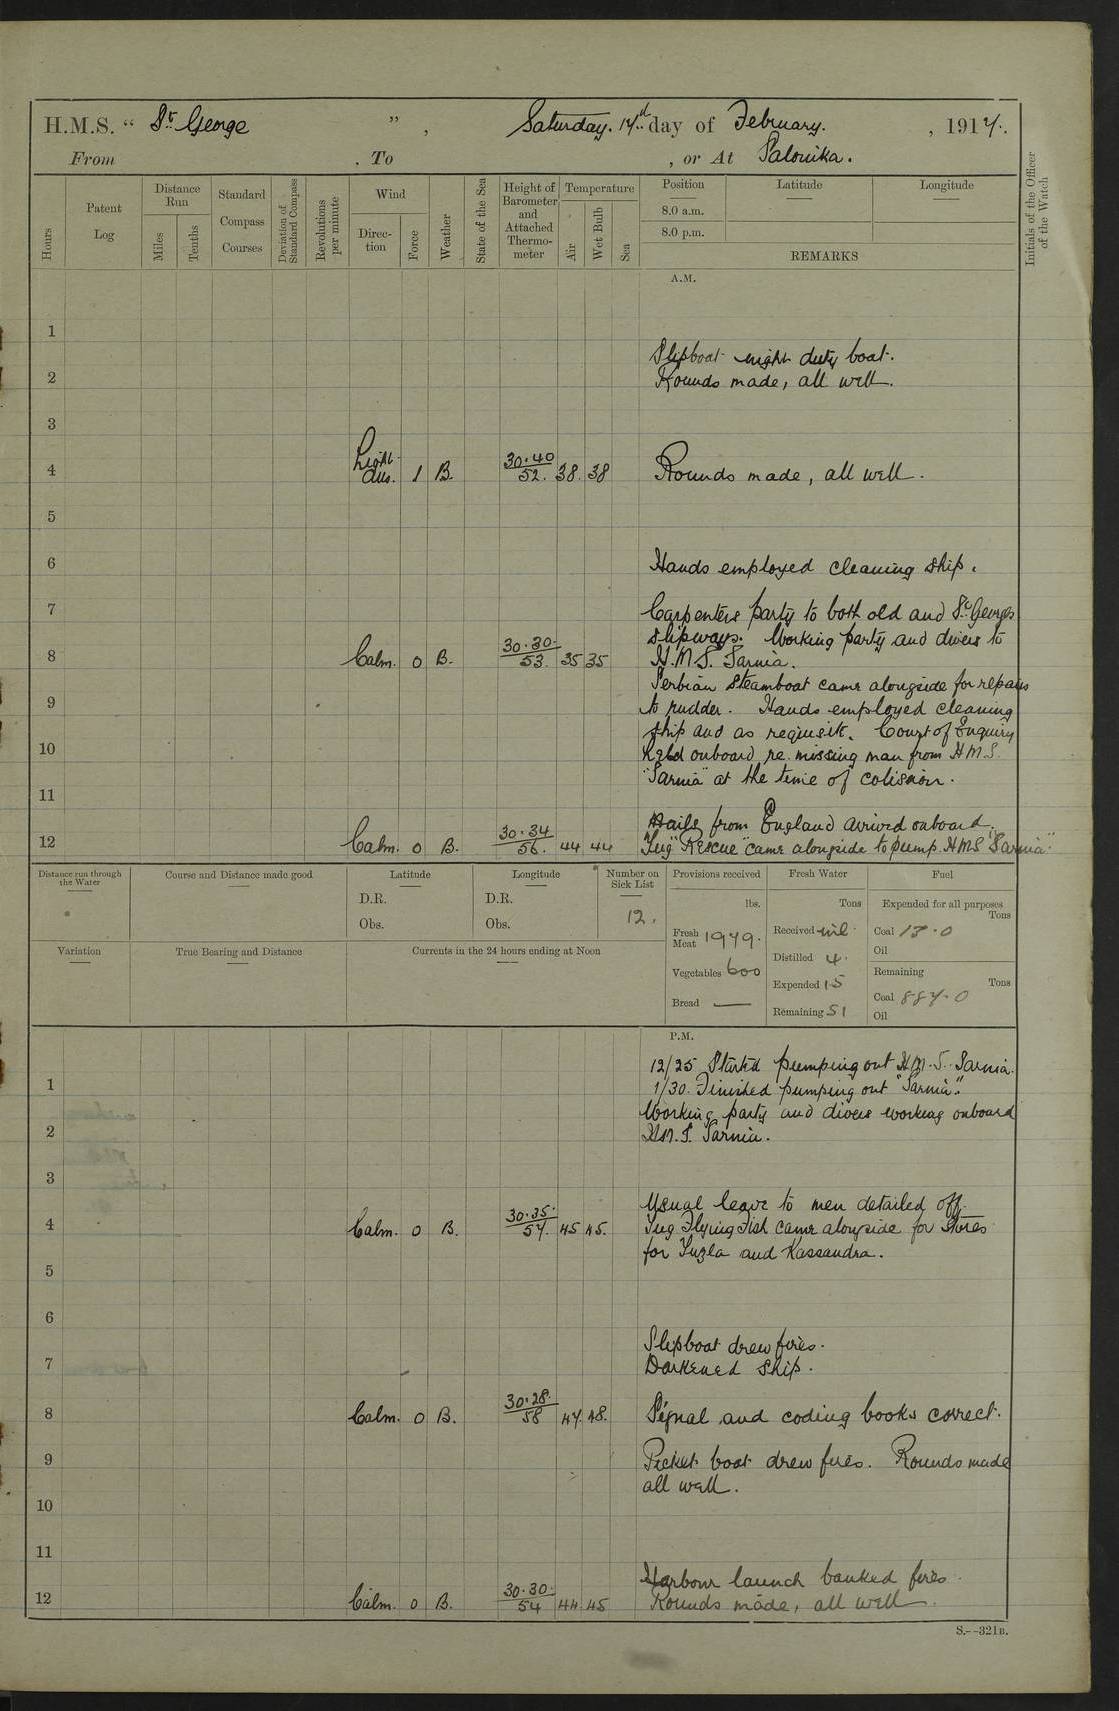 H.M.S. “ St George ” , Saturday. 17th day of February. , 1917.
From . To , or At Salonika.
Hours
Patent Log
Distance Run
Miles
Tenths
Standard Compass Courses
Deviation of Standard Compass
Revolutions per minute
Wind
Direction
Force
Weather
State of the Sea
Height of Barometer and Attached Thermometer
Temperature
Air
Wet Bulb
Sea
Position
8.0 a.m.
8.0 p.m.
Latitude
Longitude
REMARKS
Initials of the Officer of the Watch
A.M.
1
Slipboat night duty boat.
2 Rounds made, all well.
3
4 Light airs. 1 B. 30.40 52. 38. 38 Rounds made, all well.
5
6 Hands employed cleaning ship.
7 Carpenters party to both old and St Georges
slipways. Working party and divers to
8 Calm. 0 B. 30.30. 53. 35 35 H.M.S. Sarnia.
Serbian steamboat came alongside for repairs
9 to rudder. Hands employed cleaning
ship and as requisite. Court of Enquiry
10 held onboard re. missing man from H.M.S.
"Sarnia" at the time of colision.
11
Mails from England arrived onboard.
12 Calm. 0 B. 30.34 56. 44 44 Tug "Rescue" came alongside to pump H.M.S "Sarnia"
Distance run through the Water
Course and Distance made good
Latitude
D.R.
Obs.
Longitude
D.R.
Obs.
Number on Sick List
12.
Provisions received
lbs.
Fresh Meat 1979.
Vegetables 600
Bread —
Fresh Water
Tons
Received nil.
Distilled 4.
Expended 15
Remaining 51
Fuel
Expended for all purposes
Tons
Coal 13.0
Oil
Remaining
Tons
Coal 887.0
Oil
Variation
True Bearing and Distance
Currents in the 24 hours ending at Noon
P.M.
12/25 Started pumping out H.M.S. Sarnia.
1 1/30. Finished pumping out "Sarnia".
Working party and divers working onboard
2 H.M.S. Sarnia.
3
Usual leave to men detailed off.
4 Calm. 0 B. 30.35. 57. 45 45. Tug Flying Fish came alongside for stores
for Tuzla and Kassandra.
5
6
Slipboat drew fires.
7 Darkened ship.
8 Calm. 0 B. 30.28. 58 47. 48. Signal and coding books correct.
9 Picket boat drew fires. Rounds made
all well.
10
11
Harbour launch banked fires.
12 Calm. 0 B. 30.30. 54 44. 45 Rounds made, all well.
S.--321B.